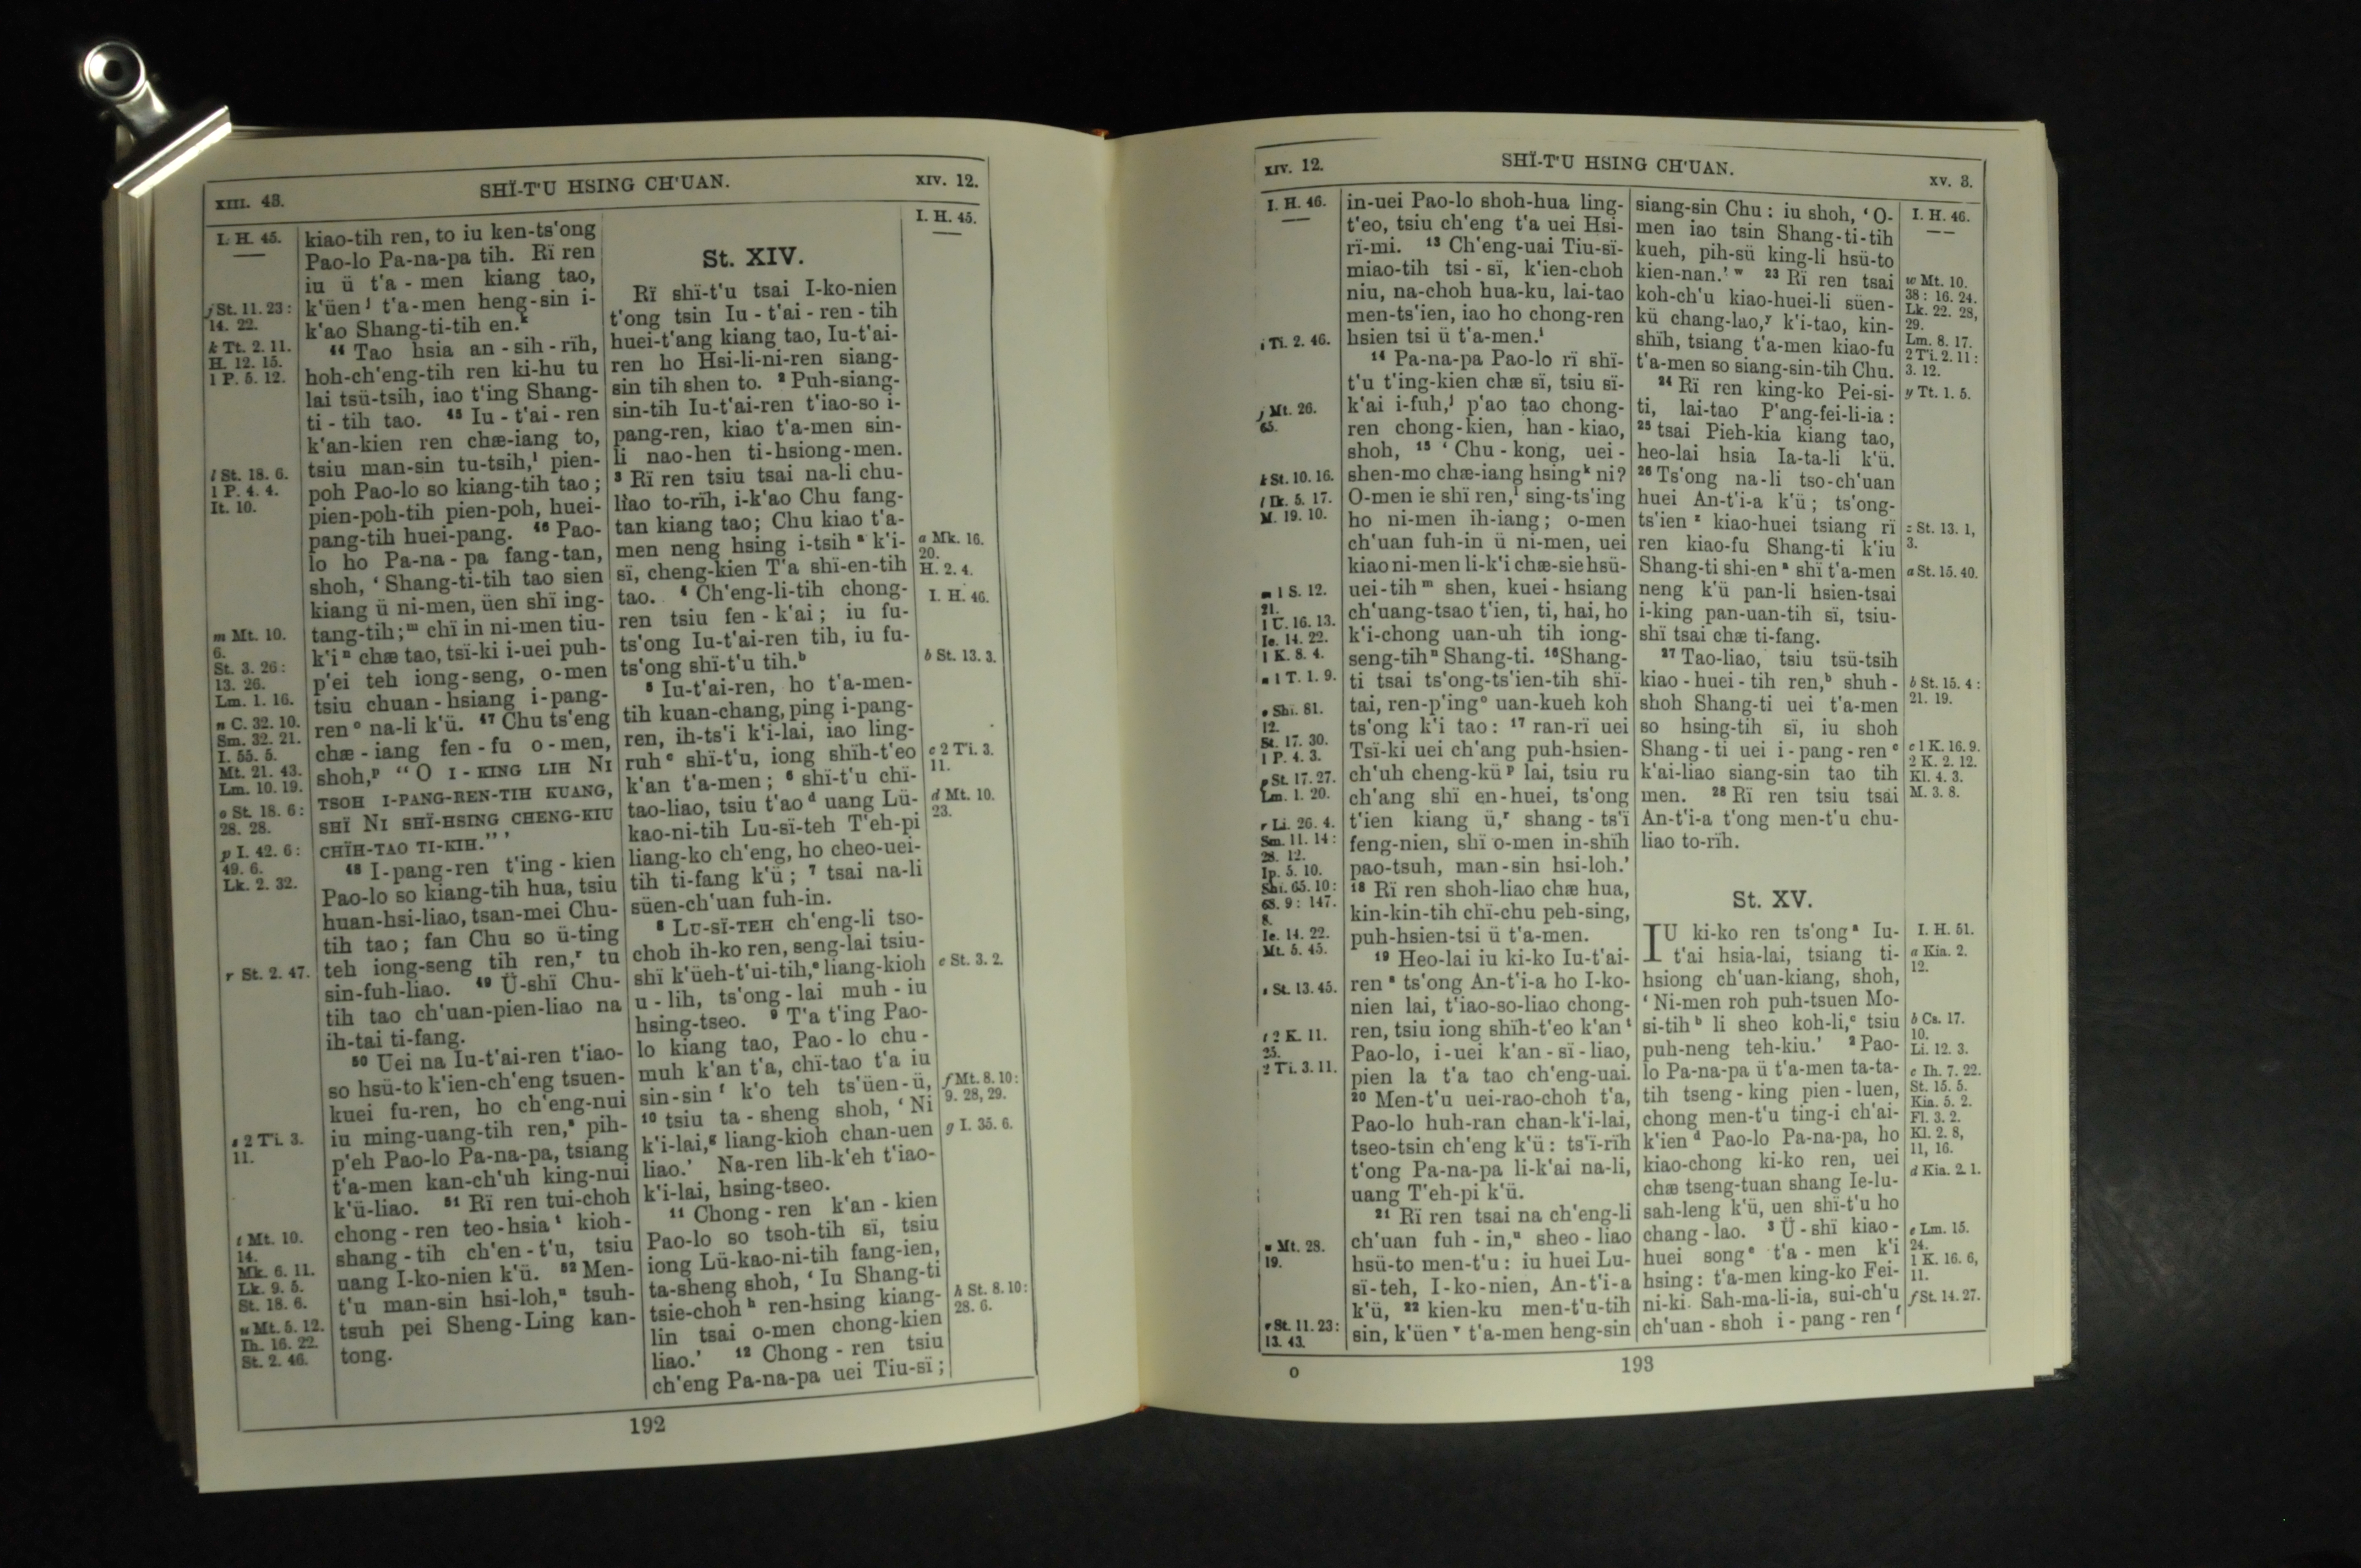 XIII. 43.
SHÏ-T'U HSING CH'UAN.
XIV. 12.
I. H. 45.
j St. 11. 23 :
14. 22.
k Tt. 2. 11.
H. 12. 15.
1 P. 5. 12.
l St. 18. 6.
1 P. 4. 4.
It. 10.
m Mt. 10.
6.
St. 3. 26 :
13. 26.
Lm. 1. 16.
n C. 32. 10.
Sm. 32. 21.
I. 55. 5.
Mt. 21. 43.
Lm. 10. 19.
o St. 18. 6 :
28. 28.
p I. 42. 6 :
49. 6.
Lk. 2. 32.
r St. 2. 47.
s 2 Ti. 3.
11.
t Mt. 10.
14.
Mk. 6. 11.
Lk. 9. 5.
St. 18. 6.
u Mt. 5. 12.
Ih. 16. 22.
St. 2. 46.
kiao-tih ren, to iu ken-ts'ong
Pao-lo Pa-na-pa tih. Rï ren
iu ü t'a - men kiang tao,
k'üen j t'a-men heng-sin i-
k'ao Shang-ti-tih en.k
44 Tao hsia an - sih - rïh,
hoh-ch'eng-tih ren ki-hu tu
lai tsü-tsih, iao t'ing Shang-
ti - tih tao. 45 Iu - t'ai - ren
k'an-kien ren chæ-iang to,
tsiu man-sin tu-tsih,l pien-
poh Pao-lo so kiang-tih tao ;
pien-poh-tih pien-poh, huei-
pang-tih huei-pang. 46 Pao-
lo ho Pa-na - pa fang-tan,
shoh, ‘ Shang-ti-tih tao sien
kiang ü ni-men, üen shï ing-
tang-tih ;m chï in ni-men tiu-
k'i n chæ tao, tsï-ki i-uei puh-
p'ei teh iong-seng, o-men
tsiu chuan - hsiang i-pang-
ren o na-li k'ü. 47 Chu ts'eng
chæ - iang fen - fu o - men,
shoh,p “ O I - KING LIH NI
TSOH I-PANG-REN-TIH KUANG,
SHÏ NI SHÏ-HSING CHENG-KIU
CHÏH-TAO TI-KIH.” ’
48 I-pang-ren t'ing - kien
Pao-lo so kiang-tih hua, tsiu
huan-hsi-liao, tsan-mei Chu-
tih tao ; fan Chu so ü-ting
teh iong-seng tih ren,r tu
sin-fuh-liao. 49 Ü-shï Chu-
tih tao ch'uan-pien-liao na
ih-tai ti-fang.
50 Uei na Iu-t'ai-ren t'iao-
so hsü-to k'ien-ch'eng tsuen-
kuei fu-ren, ho ch'eng-nui
iu ming-uang-tih ren,s pih-
p'eh Pao-lo Pa-na-pa, tsiang
t'a-men kan-ch'uh king-nui
k'ü-liao. 51 Rï ren tui-choh
chong - ren teo-hsia t kioh-
shang - tih ch'en - t'u, tsiu
uang I-ko-nien k'ü. 52 Men-
t'u man-sin hsi-loh,u tsuh-
tsuh pei Sheng-Ling kan-
tong.
St. XIV.
Rï shï-t'u tsai I-ko-nien
t'ong tsin Iu - t'ai - ren - tih
huei-t'ang kiang tao, Iu-t'ai-
ren ho Hsi-li-ni-ren siang-
sin tih shen to. 2 Puh-siang-
sin-tih Iu-t'ai-ren t'iao-so i-
pang-ren, kiao t'a-men sin-
li nao-hen ti-hsiong-men.
3 Rï ren tsiu tsai na-li chu-
liao to-rïh, i-k'ao Chu fang-
tan kiang tao; Chu kiao t'a-
men neng hsing i-tsih a k'i-
sï, cheng-kien T'a shï-en-tih
tao. 4 Ch'eng-li-tih chong-
ren tsiu fen - k'ai ; iu fu-
ts'ong Iu-t'ai-ren tih, iu fu-
ts'ong shï-t'u tih.b
5 Iu-t'ai-ren, ho t'a-men-
tih kuan-chang, ping i-pang-
ren, ih-ts'i k'i-lai, iao ling-
ruh c shï-t'u, iong shïh-t'eo
k'an t'a-men ; 6 shï-t'u chï-
tao-liao, tsiu t'ao d uang Lü-
kao-ni-tih Lu-sï-teh T'eh-pi
liang-ko ch'eng, ho cheo-uei-
tih ti-fang k'ü ; 7 tsai na-li
süen-ch'uan fuh-in.
8 LU-SÏ-TEH ch'eng-li tso-
choh ih-ko ren, seng-lai tsiu-
shï k'üeh-t'ui-tih,e liang-kioh
u - lih, ts'ong - lai muh - iu
hsing-tseo. 9 T'a t'ing Pao-
lo kiang tao, Pao - lo chu -
muh k'an t'a, chï-tao t'a iu
sin-sin f k'o teh ts'üen-ü,
10 tsiu ta - sheng shoh, ‘ Ni
k'i-lai,g liang-kioh chan-uen
liao.’ Na-ren lih-k'eh t'iao-
k'i-lai, hsing-tseo.
11 Chong - ren k'an - kien
Pao-lo so tsoh-tih sï, tsiu
iong Lü-kao-ni-tih fang-ien,
ta-sheng shoh, ‘ Iu Shang-ti
tsie-choh h ren-hsing kiang-
lin tsai o-men chong-kien
liao.’ 12 Chong - ren tsiu
ch'eng Pa-na-pa uei Tiu-sï ;
I. H. 45.
a Mk. 16.
20.
H. 2. 4.
I. H. 46.
b St. 13. 3.
c 2 Ti. 3.
11.
d Mt. 10.
23.
e St. 3. 2.
f Mt. 8. 10 :
9. 28, 29.
g I. 35. 6.
h St. 8. 10 :
28. 6.
192
XIV. 12.
SHÏ-T'U HSING CH'UAN.
XV. 3.
I. H. 46.
i Ti. 2. 46.
j Mt. 26.
65.
k St. 10. 16.
l Ik. 5. 17.
M. 19. 10.
m 1 S. 12.
21.
1 U. 16. 13.
Ie. 14. 22.
1 K. 8. 4.
n 1 T. 1. 9.
o Shi. 81.
12.
St. 17. 30.
1 P. 4. 3.
p St. 17. 27.
Lm. 1. 20.
r Li. 26. 4.
Sm. 11. 14 :
28. 12.
Ip. 5. 10.
Shi. 65. 10 :
68. 9 : 147.
8.
Ie. 14. 22.
Mt. 5. 45.
s St. 13. 45.
t 2 K. 11.
25.
2 Ti. 3. 11.
u Mt. 28.
19.
v St. 11. 23 :
13. 43.
in-uei Pao-lo shoh-hua ling-
t'eo, tsiu ch'eng t'a uei Hsi-
rï-mi. 13 Ch'eng-uai Tiu-sï-
miao-tih tsi - sï, k'ien-choh
niu, na-choh hua-ku, lai-tao
men-ts'ien, iao ho chong-ren
hsien tsi ü t'a-men.i
14 Pa-na-pa Pao-lo rï shï-
t'u t'ing-kien chæ sï, tsiu sï-
k'ai i-fuh,j p'ao tao chong-
ren chong-kien, han - kiao,
shoh, 15 ‘ Chu - kong, uei -
shen-mo chæ-iang hsing k ni?
O-men ie shï ren,l sing-ts'ing
ho ni-men ih-iang ; o-men
ch'uan fuh-in ü ni-men, uei
kiao ni-men li-k'i chæ-sie hsü-
uei-tih m shen, kuei - hsiang
ch'uang-tsao t'ien, ti, hai, ho
k'i-chong uan-uh tih iong-
seng-tih n Shang-ti. 16 Shang-
ti tsai ts'ong-ts'ien-tih shï-
tai, ren-p'ing o uan-kueh koh
ts'ong k'i tao : 17 ran-rï uei
Tsï-ki uei ch'ang puh-hsien-
ch'uh cheng-kü p lai, tsiu ru
ch'ang shï en-huei, ts'ong
t'ien kiang ü,r shang - ts'ï
feng-nien, shï o-men in-shïh
pao-tsuh, man-sin hsi-loh.’
18 Rï ren shoh-liao chæ hua,
kin-kin-tih chï-chu peh-sing,
puh-hsien-tsi ü t'a-men.
19 Heo-lai iu ki-ko Iu-t'ai-
ren s ts'ong An-t'i-a ho I-ko-
nien lai, t'iao-so-liao chong-
ren, tsiu iong shïh-t'eo k'an t
Pao-lo, i-uei k'an - sï - liao,
pien la t'a tao ch'eng-uai.
20 Men-t'u uei-rao-choh t'a,
Pao-lo huh-ran chan-k'i-lai,
tseo-tsin ch'eng k'ü : ts'ï-rïh
t'ong Pa-na-pa li-k'ai na-li,
uang T'eh-pi k'ü.
21 Rï ren tsai na ch'eng-li
ch'uan fuh - in,u sheo - liao
hsü-to men-t'u : iu huei Lu-
sï-teh, I-ko-nien, An-t'i-a
k'ü, 22 kien-ku men-t'u-tih
sin, k'üen v t'a-men heng-sin
siang-sin Chu : iu shoh, ‘ O-
men iao tsin Shang-ti-tih
kueh, pih-sü king-li hsü-to
kien-nan.’ w 23 Rï ren tsai
koh-ch'u kiao-huei-li süen-
kü chang-lao,y k'i-tao, kin-
shïh, tsiang t'a-men kiao-fu
t'a-men so siang-sin-tih Chu.
24 Rï ren king-ko Pei-si-
ti, lai-tao P'ang-fei-li-ia :
25 tsai Pieh-kia kiang tao,
heo-lai hsia Ia-ta-li k'ü.
26 Ts'ong na-li tso-ch'uan
huei An-t'i-a k'ü ; ts'ong-
ts'ien z kiao-huei tsiang rï
ren kiao-fu Shang-ti k'iu
Shang-ti shi-en a shï t'a-men
neng k'ü pan-li hsien-tsai
i-king pan-uan-tih sï, tsiu-
shï tsai chæ ti-fang.
27 Tao-liao, tsiu tsü-tsih
kiao - huei - tih ren,b shuh -
shoh Shang-ti uei t'a-men
so hsing-tih sï, iu shoh
Shang - ti uei i - pang - ren c
k'ai-liao siang-sin tao tih
men. 28 Rï ren tsiu tsai
An-t'i-a t'ong men-t'u chu-
liao to-rïh.
St. XV.
IU ki-ko ren ts'ong a Iu-
t'ai hsia-lai, tsiang ti-
hsiong ch'uan-kiang, shoh,
‘ Ni-men roh puh-tsuen Mo-
si-tih b li sheo koh-li,c tsiu
puh-neng teh-kiu.’ 2 Pao-
lo Pa-na-pa ü t'a-men ta-ta-
tih tseng - king pien - luen,
chong men-t'u ting-i ch'ai-
k'ien d Pao-lo Pa-na-pa, ho
kiao-chong ki-ko ren, uei
chæ tseng-tuan shang Ie-lu-
sah-leng k'ü, uen shï-t'u ho
chang - lao. 3 Ü - shï kiao -
huei song e t'a - men k'i
hsing : t'a-men king-ko Fei-
ni-ki Sah-ma-li-ia, sui-ch'u
ch'uan - shoh i - pang - ren f
I. H. 46.
w Mt. 10.
38 : 16. 24.
Lk. 22. 28,
29.
Lm. 8. 17.
2 Ti. 2. 11 :
3. 12.
y Tt. 1. 5.
z St. 13. 1,
3.
a St. 15. 40.
b St. 15. 4 :
21. 19.
c 1 K. 16. 9.
2 K. 2. 12.
Kl. 4. 3.
M. 3. 8.
I. H. 51.
a Kia. 2.
12.
b Cs. 17.
10.
Li. 12. 3.
c Ih. 7. 22.
St. 15. 5.
Kia. 5. 2.
Fl. 3. 2.
Kl. 2. 8,
11, 16.
d Kia. 2. 1.
e Lm. 15.
24.
1 K. 16. 6,
11.
f St. 14. 27.
O
193